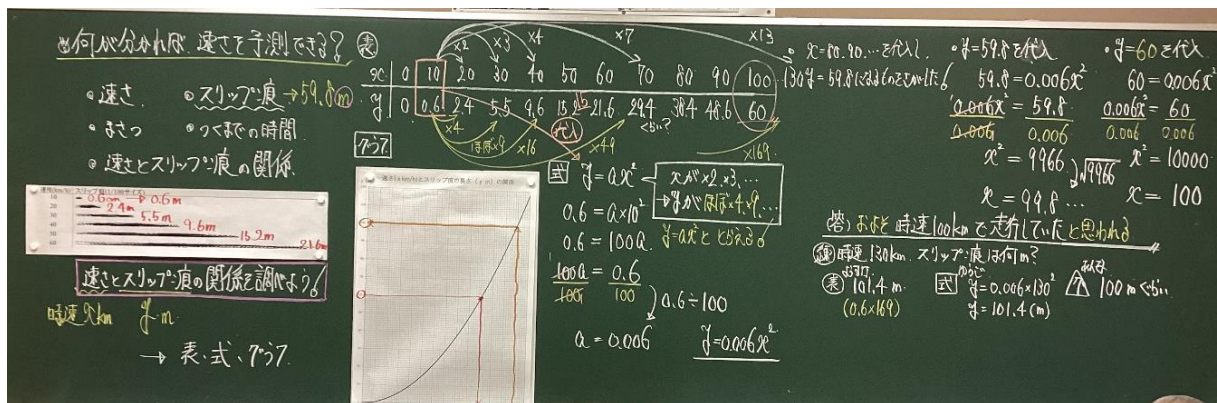 何が分かれば、速さを予測できる?
・速さ
・スリップ痕→59.8m
・まさつ
・つくまでの時間
・速さとスリップ痕の関係
0.6cm→0.6m
2.4m
5.5m
9.6m
15.2m
21.6m
速さとスリップ痕の関係を調べよう!
時速xkm ym
→表、式、グラフ
表
×2 ×3 ×4 ×7 ×13
x 0 10 20 30 40 50 60 70 80 90 100 130
y 0 0.6 2.4 5.5 9.6 15.2 21.6 29.4 38.4 48.6 60
ぐらい?
×4 ほぼ×9 ×16 ×49 ×169
代入
グラフ
速さ(x km/h)とスリップ痕の長さ(y m)の関係
式 y=ax²
xが×2,×3,…
→yがほぼ×4,×9,…
y=ax²ととらえる
0.6=a×10²
0.6=100a
100a/100=0.6/100
0.6÷100
a=0.006
y=0.006x²
・x=80,90,…を代入し、
y=59.8になるものをさがした!
・y=59.8を代入
59.8=0.006x²
0.006x²/0.006=59.8/0.006
x²=9966
√9966
x=99.8…
・y=60を代入
60=0.006x²
0.006x²/0.006=60/0.006
x²=10000
x=100
答)およそ時速100kmで走行していたと思われる
時速130km、スリップ痕は何m?
表 101.4m
(0.6×169)
式 y=0.006×130²
y=101.4(m)
100mぐらい